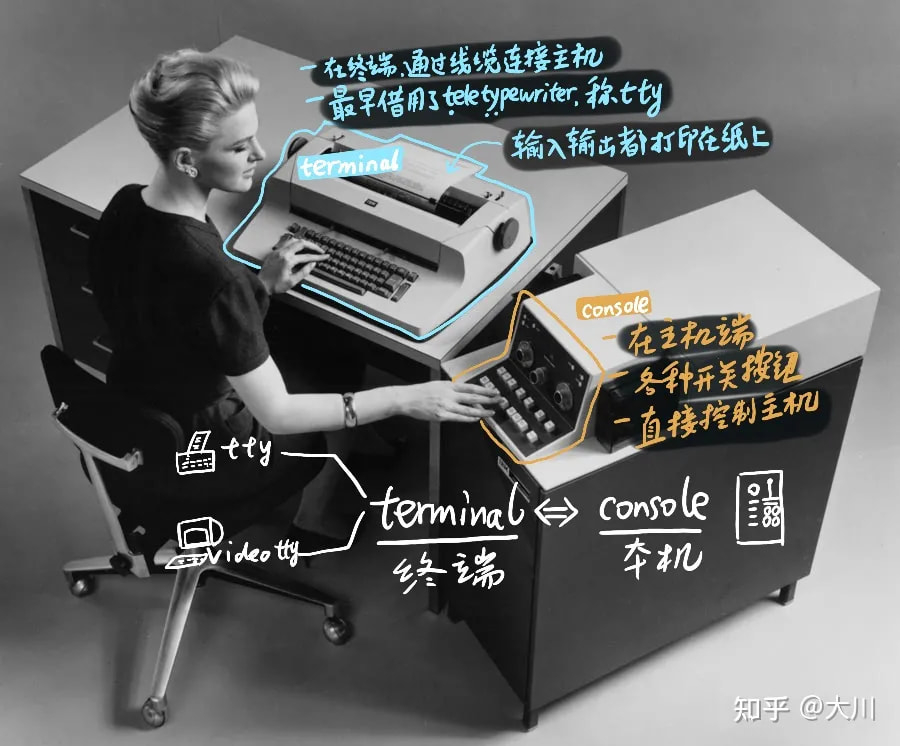 - 在终端、通过线缆连接主机
- 最早借用了teletypewriter,称tty
terminal
输入输出都打印在纸上
console
- 在主机端
- 各种开关按钮
- 直接控制主机
tty
terminal ⇔ console
videotty
终端
本机
知乎 @大川